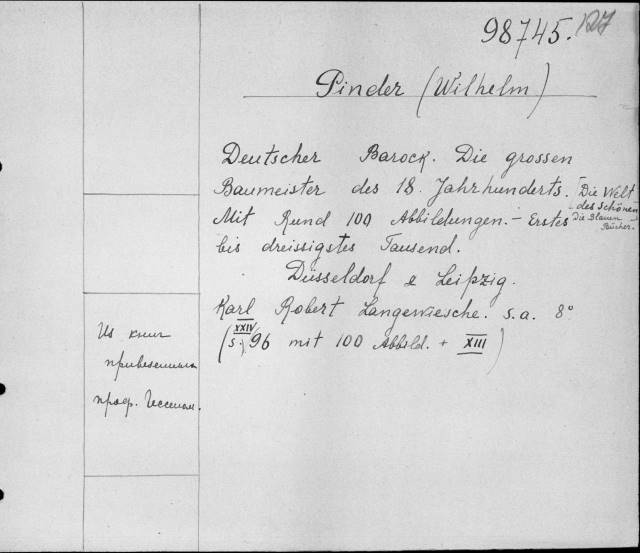 98745.
Pinder (Wilhelm)
Deutscher Barock. Die grossen
Baumeister des 18. Jahrhunderts.
Mit Rund 100 Abbildungen. – Erstes
bis dreissigstes Tausend.
Die Welt
des schönen
Die Blauen
Bücher.
Düsseldorf & Leipzig.
Karl Robert Langewiesche. s. a. 8°
XXIV
(S. 96 mit 100 Abbild. + XIII)
Из книг
привезенных
проф. Гессеном.